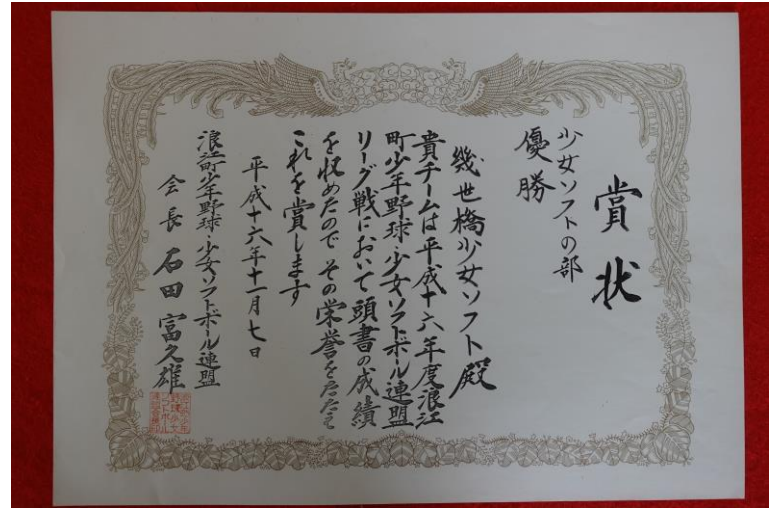 賞状
少女ソフトの部
優勝
幾世橋少女ソフト殿
貴チームは平成十六年度浪江
町少年野球・少女ソフトボール連盟
リーグ戦において頭書の成績
を収めたのでその栄誉をたたえ
これを賞します
平成十六年十一月七日
浪江町少年野球・少女ソフトボール連盟
会長 石田富久雄